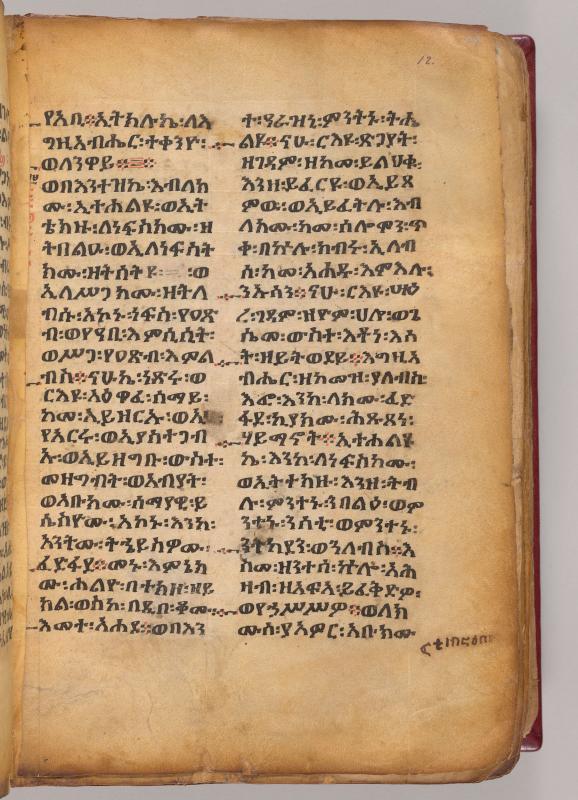 12.
የአቢ፡፡ኢትክሉኬ፡ለእ
ግዚአብሔር፡ተቀንዮ፡
ወለንዋይ፡፡
ወበእንተዝኬ፡እብለክ
ሙ፡ኢተሐልዩ፡ወኢት
ቴክዙ፡ለነፍስክሙ፡ዘ
ትበልዑ፡ወኢለነፍስት
ክሙ፡ዘትሰትዩ፡ወ
ኢለሥጋክሙ፡ዘትለ
ብሱ፡አኮኑ፡ነፍስ፡የዐጽ
ብ፡ወየዓቢ፡እምሲሲት፡
ወሥጋ፡የዐጽብ፡እምል
ብስ፡፡ናሁኬ፡ነጽሩ፡ወ
ርእዩ፡አዕዋፈ፡ሰማይ፡
ከመ፡ኢይዘርኡ፡ወኢ
የአርሩ፡ወኢያስተጋብ
ኡ፡ወኢይዘግቡ፡ውስተ፡
መዘግብት፡ወአብያት፡
ወአቡክሙ፡ሰማያዊ፡ይ
ሴስዮሙ፡አኮኑ፡እንከ፡
አንትሙ፡ትኄይስዎሙ፡
ፈድፋደ፡፡መኑ፡እምኔክ
ሙ፡ሐልዮ፡በተክዞ፡ዘይ
ክል፡ወስኮ፡በዲበ፡ቆሙ፡
እመተ፡አሐደ፡፡ወበእን
ተ፡ዓራዝኒ፡ምንትኑ፡ትሔ
ልዩ፡፡ናሁ፡ርእዩ፡ጽጌያት፡
ዘገዳም፡ዘከመ፡ይልህቁ፡
እንዘ፡ይፈርዩ፡ወኢይጻ
ምዉ፡ወኢይፈትሉ፡እብ
ለክሙ፡ከመ፡ሰሎሞን፡ጥ
ቀ፡በኵሉ፡ክብሩ፡ኢለብ
ሰ፡ከመ፡አሐዱ፡እምእሉ፡
ንኡሳን፡፡ናሁ፡ርእዩ፡ሣዕ
ረ፡ገዳም፡ዝዮም፡ሀሎ፡ወጌ
ሰመ፡ውስተ፡እቶነ፡እሳ
ት፡ዘይትወደይ፡፡እግዚአ
ብሔር፡ዘከመዝ፡ያለብስ፡
እፎ፡እንከ፡ለክሙ፡ፈድ
ፋደ፡ኪያክሙ፡ሕጹጻነ፡
ሃይማኖት፡፡ኢተሐልዩ
ኬ፡እንከ፡ለነፍስክሙ፡
ወኢትተክዙ፡እንዘ፡ትብ
ሉ፡ምንተኑ፡ንበልዕ፡ወም
ንተኑ፡ንሰቲ፡ወምንተኑ፡
ንትከደን፡ወንለብስ፡፡እ
ስመ፡ዘንተሰ፡ኵሎ፡አሕ
ዛብ፡ዘአፍአ፡ይፈቅድዎ፡
ወየኃሥሥዎ፡፡ወለክ
ሙሰ፡ያአምር፡አቡክሙ